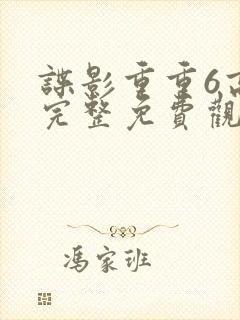 諜影重重6高
完整免費觀
馮家班